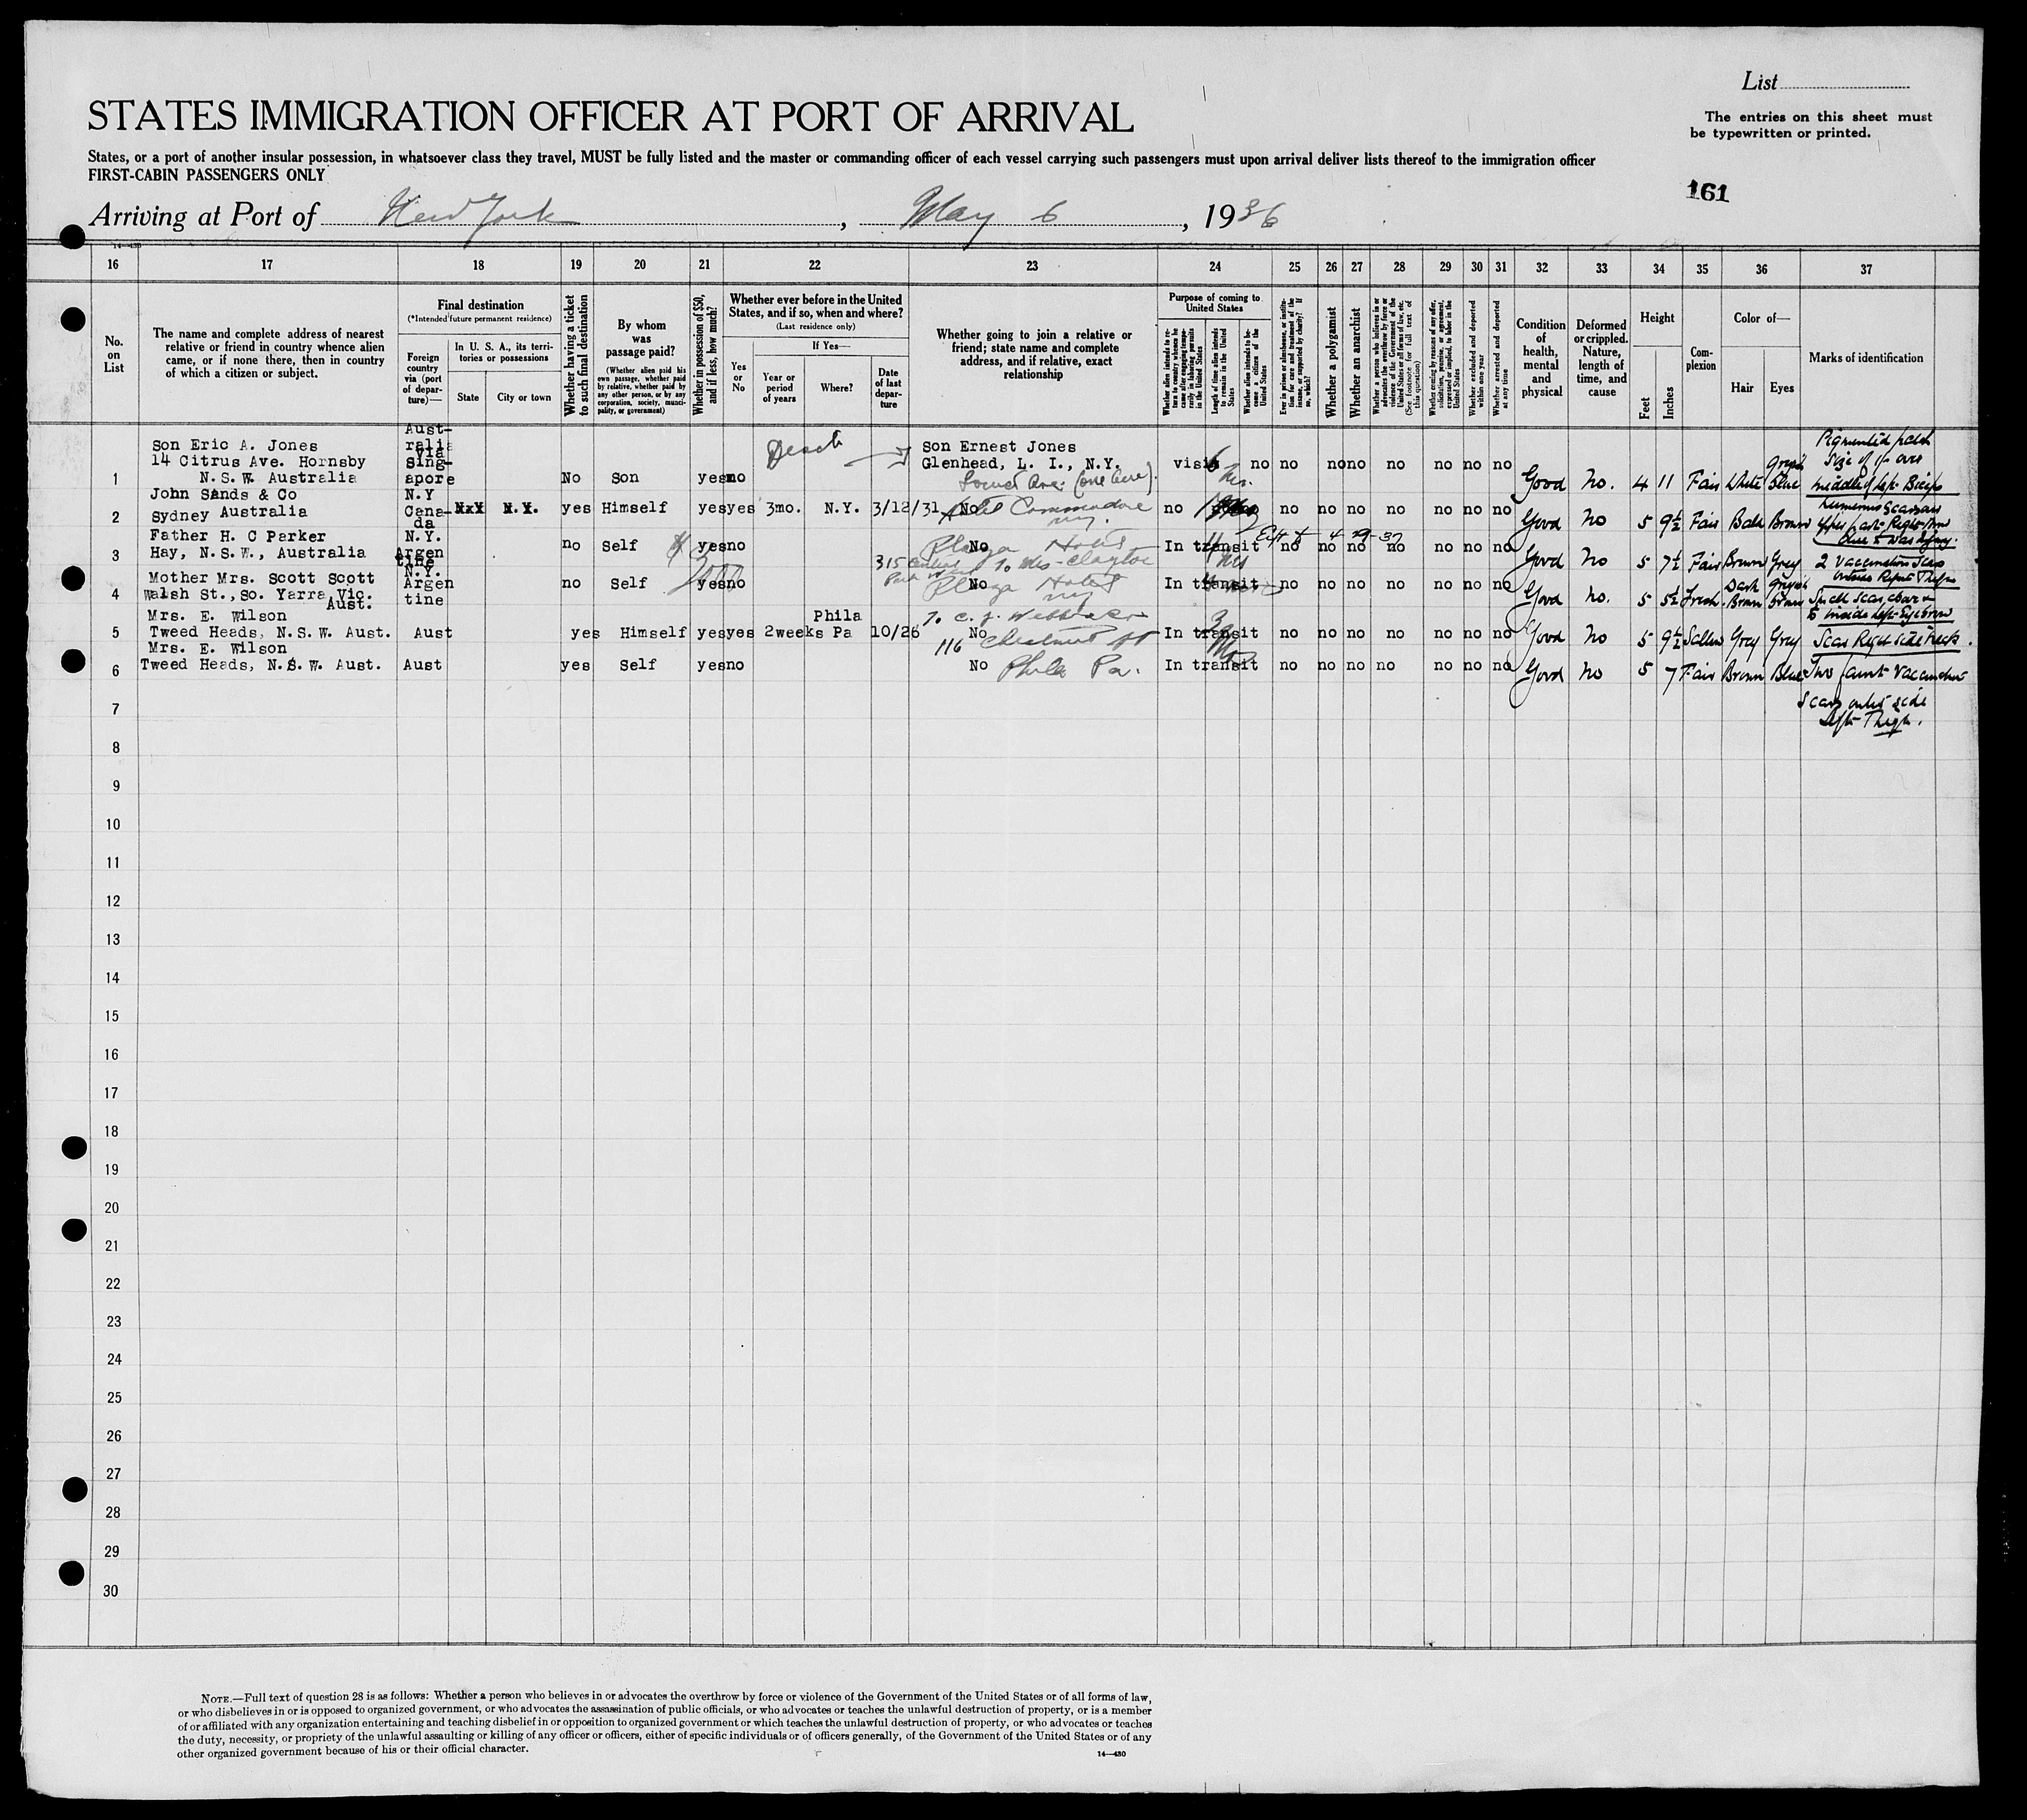 List
STATES IMMIGRATION OFFICER AT PORT OF ARRIVAL
The entries on this sheet must
be typewritten or printed.
States, or a port of another insular possession, in whatsoever class they travel, MUST be fully listed and the master or commanding officer of each vessel carrying such passengers must upon arrival deliver lists thereof to the immigration officer
FIRST-CABIN PASSENGERS ONLY
161
Arriving at Port of New York, May 6, 1936
14—430
16 17 18 19 20 21 22 23 24 25 26 27 28 29 30 31 32 33 34 35 36 37
No. on List
The name and complete address of nearest
relative or friend in country whence alien
came, or if none there, then in country
of which a citizen or subject.
Final destination
(*Intended future permanent residence)
Foreign country via (port of departure)—
In U. S. A., its territories or possessions
State
City or town
Whether having a ticket to such final destination
By whom was passage paid?
(Whether alien paid his own passage, whether paid by relative, whether paid by any other person, or by any corporation, society, municipality, or government)
Whether in possession of $50, and if less, how much?
Whether ever before in the United States, and if so, when and where?
(Last residence only)
Yes or No
If Yes—
Year or period of years
Where?
Date of last departure
Whether going to join a relative or
friend; state name and complete
address, and if relative, exact
relationship
Purpose of coming to United States
Whether alien intends to return to country whence he came after engaging temporarily in laboring pursuits in the United States
Length of time alien intends to remain in the United States
Whether alien intends to become a citizen of the United States
Ever in prison or almshouse, or institution for care and treatment of the insane, or supported by charity? If so, which?
Whether a polygamist
Whether an anarchist
Whether a person who believes in or advocates the overthrow by force or violence of the Government of the United States or all forms of law, etc. (See footnote for full text of this question)
Whether coming by reasons of any offer, solicitation, promise, or agreement, expressed or implied, to labor in the United States
Whether excluded and deported within one year
Whether arrested and deported at any time
Condition of health, mental and physical
Deformed or crippled. Nature, length of time, and cause
Height
Feet
Inches
Complexion
Color of—
Hair
Eyes
Marks of identification
1 Son Eric A. Jones
14 Citrus Ave. Hornsby
N.S.W. Australia
Aust-
ralia
via
Sing-
apore
No Son yes no
Son Ernest Jones
Glenhead, L. I., N.Y.
visit 6 no no no no no no no no
Good No. 4 11 Fair White blue
Pigmented patch
size of
middle of left Biceps
2 John Sands & Co
Sydney Australia
N.Y
Cana-
da
NxY N.Y. yes Himself yes yes 3mo. N.Y. 3/12/31 No
Hotel Commodore
N.Y.
no no no no no no no no
Good No 5 9½ Fair Bald Brown
Numerous scars on
Due to War Injury.
3 Father H. C Parker
Hay, N.S.W., Australia
N.Y.
Argen
tine
no Self yes no No
Plaza Hotel
315 Central Park West To Mrs - Clayton
In transit no no no no no no no
Ext to 4 29 37
Good No 5 7½ Fair Brown Grey
2 Vaccination Scars
outside Right Thigh
4 Mother Mrs. Scott Scott
Walsh St., So. Yarra Vic.
Aust.
N.Y.
Argen
tine
no Self yes no No
Plaza Hotel
N.Y.
In transit no no no no no no no
Good No. 5 5½ Fresh Dark Brown Brown
Small scar above &
to inside left Eyebrow
5 Mrs. E. Wilson
Tweed Heads, N.S.W. Aust. Aust yes Himself yes yes 2weeks Phila
Pa 10/26 No
To C. J. Webb & Co
116 Chestnut St
In transit no no no no no no no
Good No 5 9½ Sallow Grey Grey Scar Right side neck.
6 Mrs. E. Wilson
Tweed Heads, N.S.W. Aust. Aust yes Self yes no No
Phila Pa.
In transit no no no no no no no
Good No 5 7 Fair Brown Blue Two faint Vaccination
Scars outer side
left Thigh.
7
8
9
10
11
12
13
14
15
16
17
18
19
20
21
22
23
24
25
26
27
28
29
30
NOTE.—Full text of question 28 is as follows: Whether a person who believes in or advocates the overthrow by force or violence of the Government of the United States or of all forms of law,
or who disbelieves in or is opposed to organized government, or who advocates the assassination of public officials, or who advocates or teaches the unlawful destruction of property, or is a member
of or affiliated with any organization entertaining and teaching disbelief in or opposition to organized government or which teaches the unlawful destruction of property, or who advocates or teaches
the duty, necessity, or propriety of the unlawful assaulting or killing of any officer or officers, either of specific individuals or of officers generally, of the Government of the United States or of any
other organized government because of his or their official character.
14—430